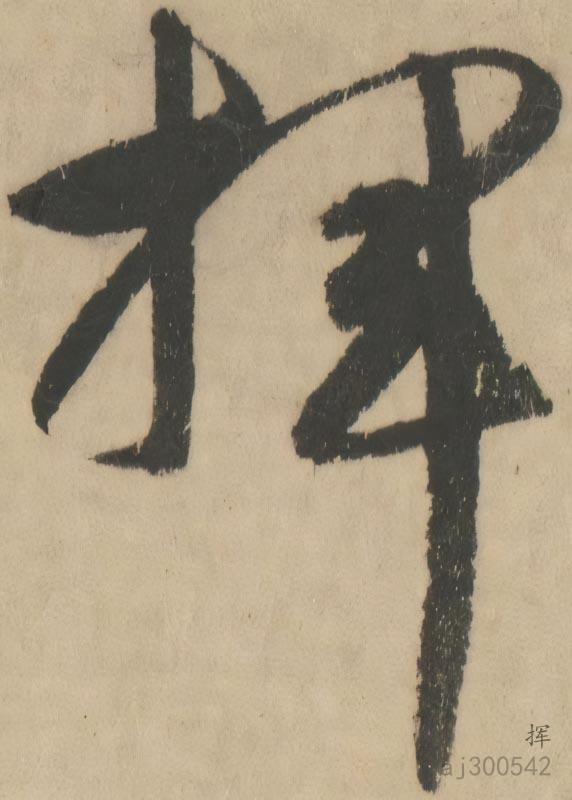 揮
挥
aj300542